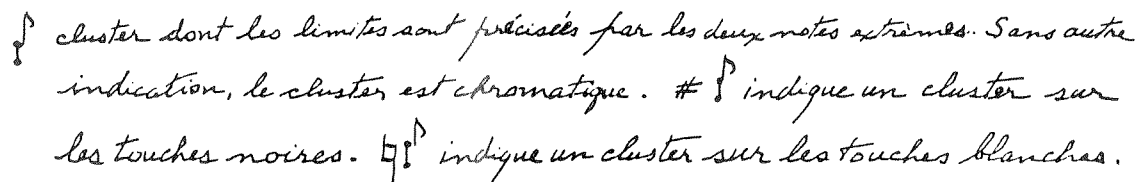 cluster dont les limites sont précisées par les deux notes extrèmes. Sans autre
indication, le cluster est chromatique. # indique un cluster sur
les touches noires. ♮ indique un cluster sur les touches blanches.